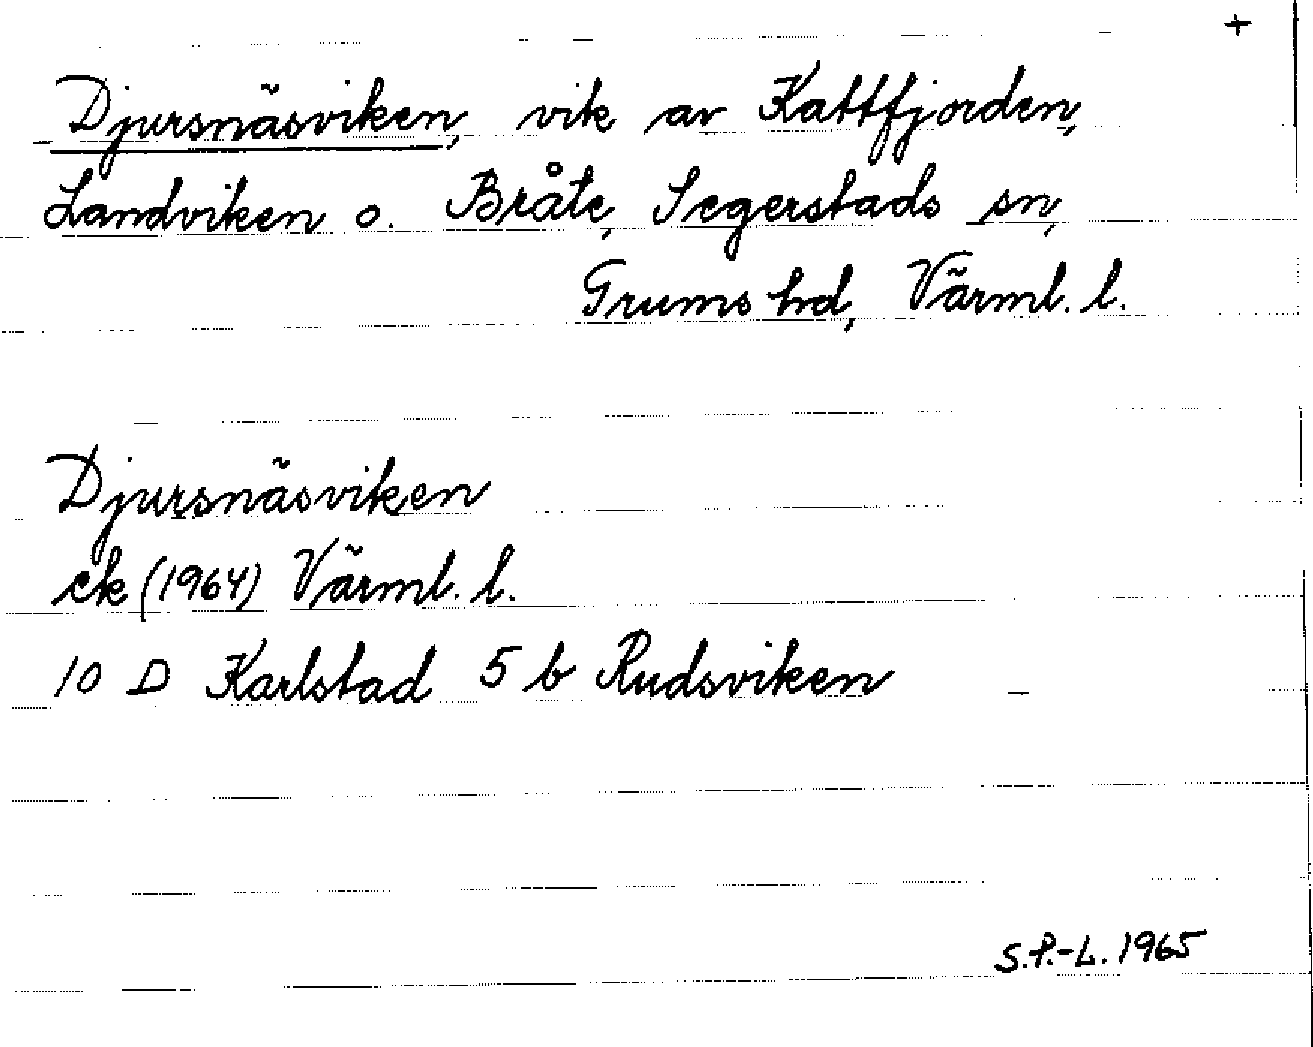 +
Djursnäsviken, vik av Kattfjorden,
Landviken o. Bråte, Segerstads sn,
Grums hd, Värml. l.
Djursnäsviken
ek (1964) Värml. l.
10 D Karlstad 5 b Rudsviken
S.P.-L. 1965